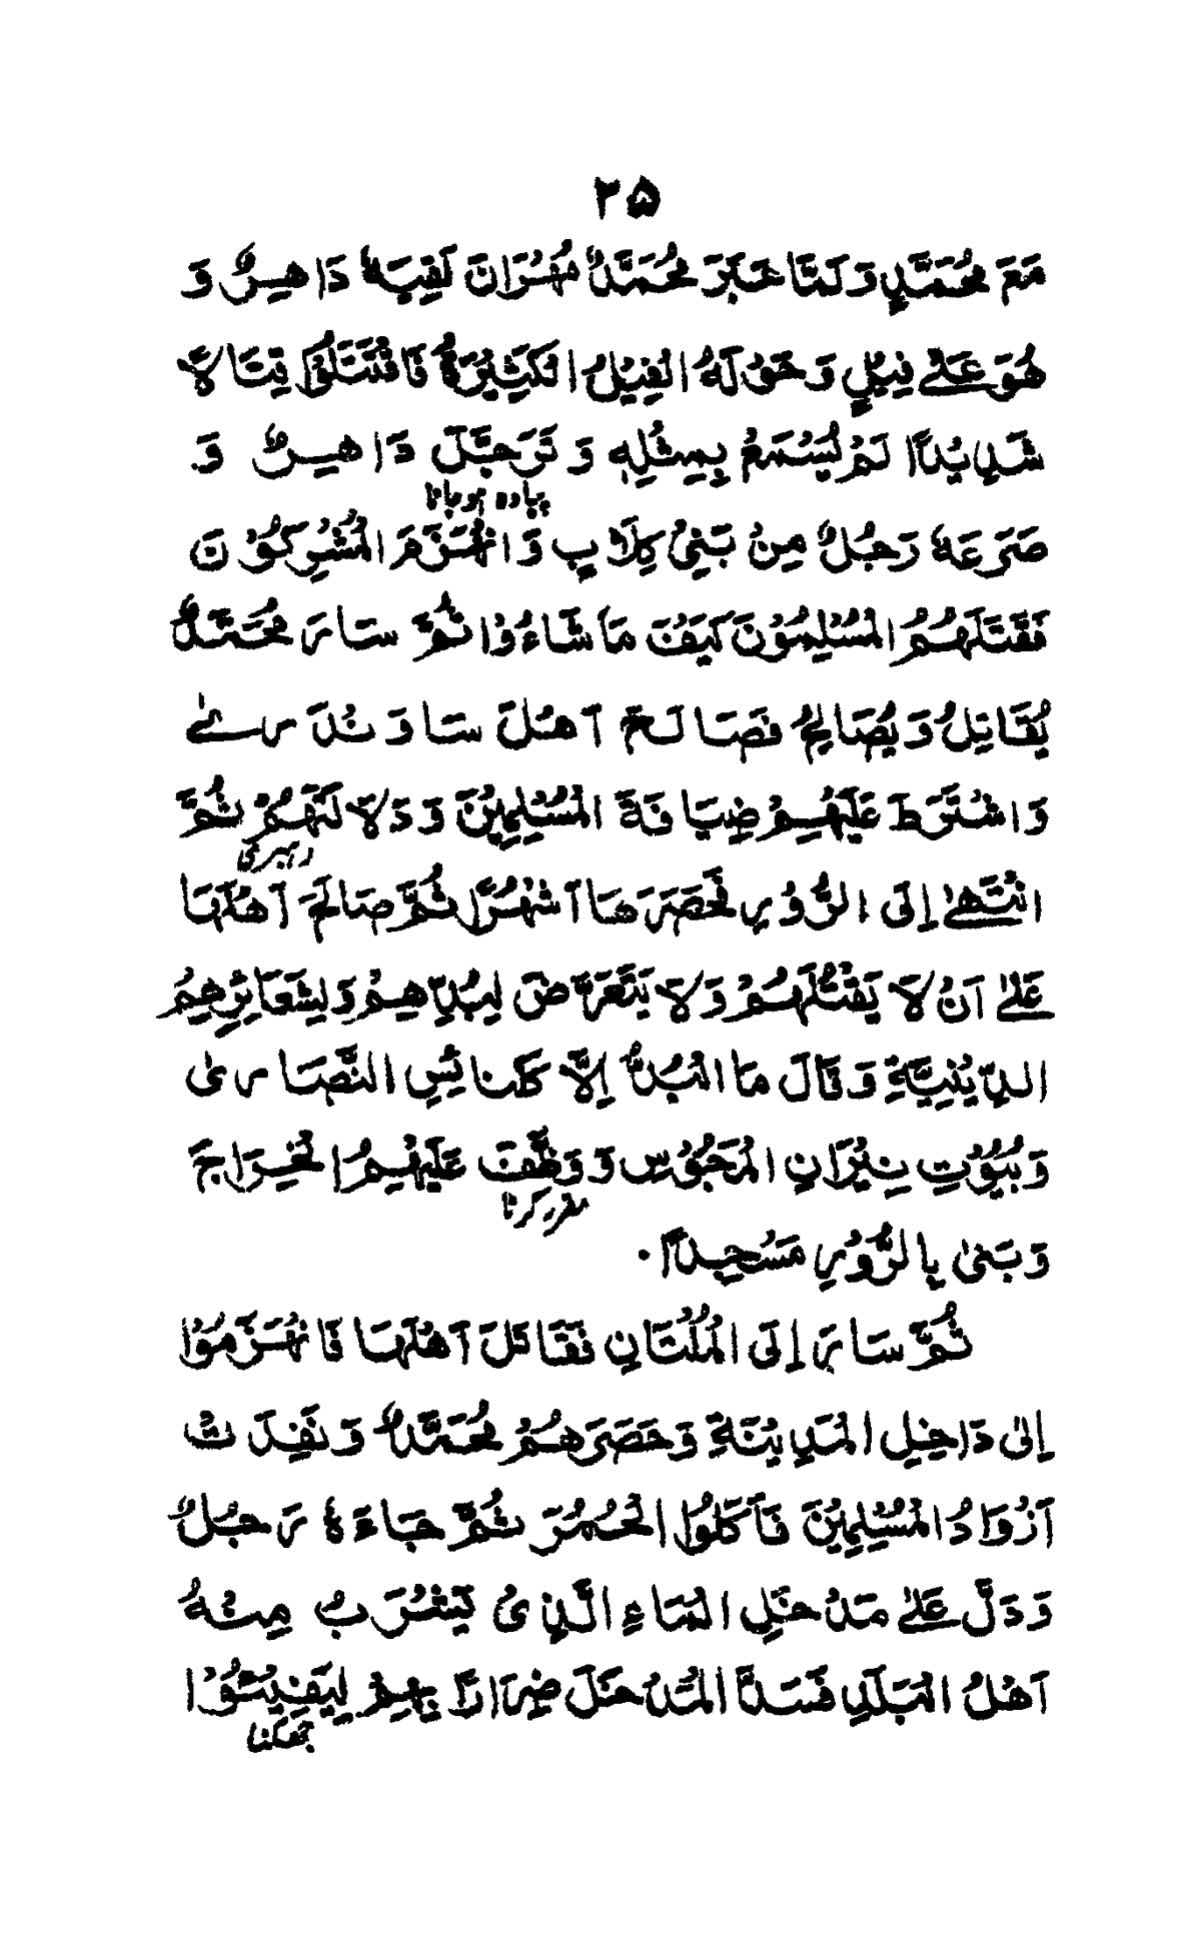 ۲۵
مَعَ مُحَمَّدٍ وَلَمَّا عَبَرَ مُحَمَّدٌ مُهْرَانَ لَقِيَهٗ دَاهِرٌ وَ
هُوَ عَلٰى فِيْلٍ وَحَوْلَهُ الْفِيْلُ الْكَثِيْرَةُ فَاقْتَتَلُوْا قِتَالًا
شَدِيْدًا لَمْ يُسْمَعْ بِمِثْلِهٖ وَ تَرَجَّلَ دَاهِرٌ وَ
پیادہ ہوجانا
صَرَعَهٗ رَجُلٌ مِنْ بَنِيْ كِلَابٍ وَانْهَزَمَ الْمُشْرِكُوْنَ
فَقَتَلَهُمُ الْمُسْلِمُوْنَ كَيْفَ مَا شَاءُوْا ثُمَّ سَارَ مُحَمَّدٌ
يُقَاتِلُ وَيُصَالِحُ فَصَالَحَ اَهْلَ سَاوَنْدَرٰے
وَاشْتَرَطَ عَلَيْهِمْ ضِيَافَةَ الْمُسْلِمِيْنَ وَدَلَالَتَهُمْ ثُمَّ
رہبری
انْتَهٰى اِلَى الرُّوْرِ فَحَصَرَهَا اَشْهُرًا ثُمَّ صَالَحَ اَهْلَهَا
عَلٰى اَنْ لَا يَقْتُلَهُمْ وَلَا يَتَعَرَّضَ لِبُدِّهِمْ وَلِشَعَائِرِهِمُ
الدِّيْنِيَّةِ وَقَالَ مَا الْبُدُّ اِلَّا كَكَنَائِسِ النَّصَارٰى
وَبُيُوْتِ نِيْرَانِ الْمَجُوْسِ وَوَظَّفَ عَلَيْهِمُ الْخِرَاجَ
مقرر کرنا
وَبَنٰى بِالرُّوْرِ مَسْجِدًا۔
ثُمَّ سَارَ اِلَى الْمُلْتَانِ فَقَاتَلَ اَهْلَهَا فَانْهَزَمُوْا
اِلٰى دَاخِلِ الْمَدِيْنَةِ وَحَصَرَهُمْ مُحَمَّدٌ وَنَفِدَتْ
اَزْوَادُ الْمُسْلِمِيْنَ فَاَكَلُوا الْحُمُرَ ثُمَّ جَاءَهٗ رَجُلٌ
وَدَلَّ عَلٰى مَدْخَلِ الْمَاءِ الَّذِيْ يَشْرَبُ مِنْهُ
اَهْلُ الْبَلَدِ فَسَدَّ الْمَدْخَلَ ضِرَارًا بِهِمْ لِيَفِيْئُوْا
جھکنا